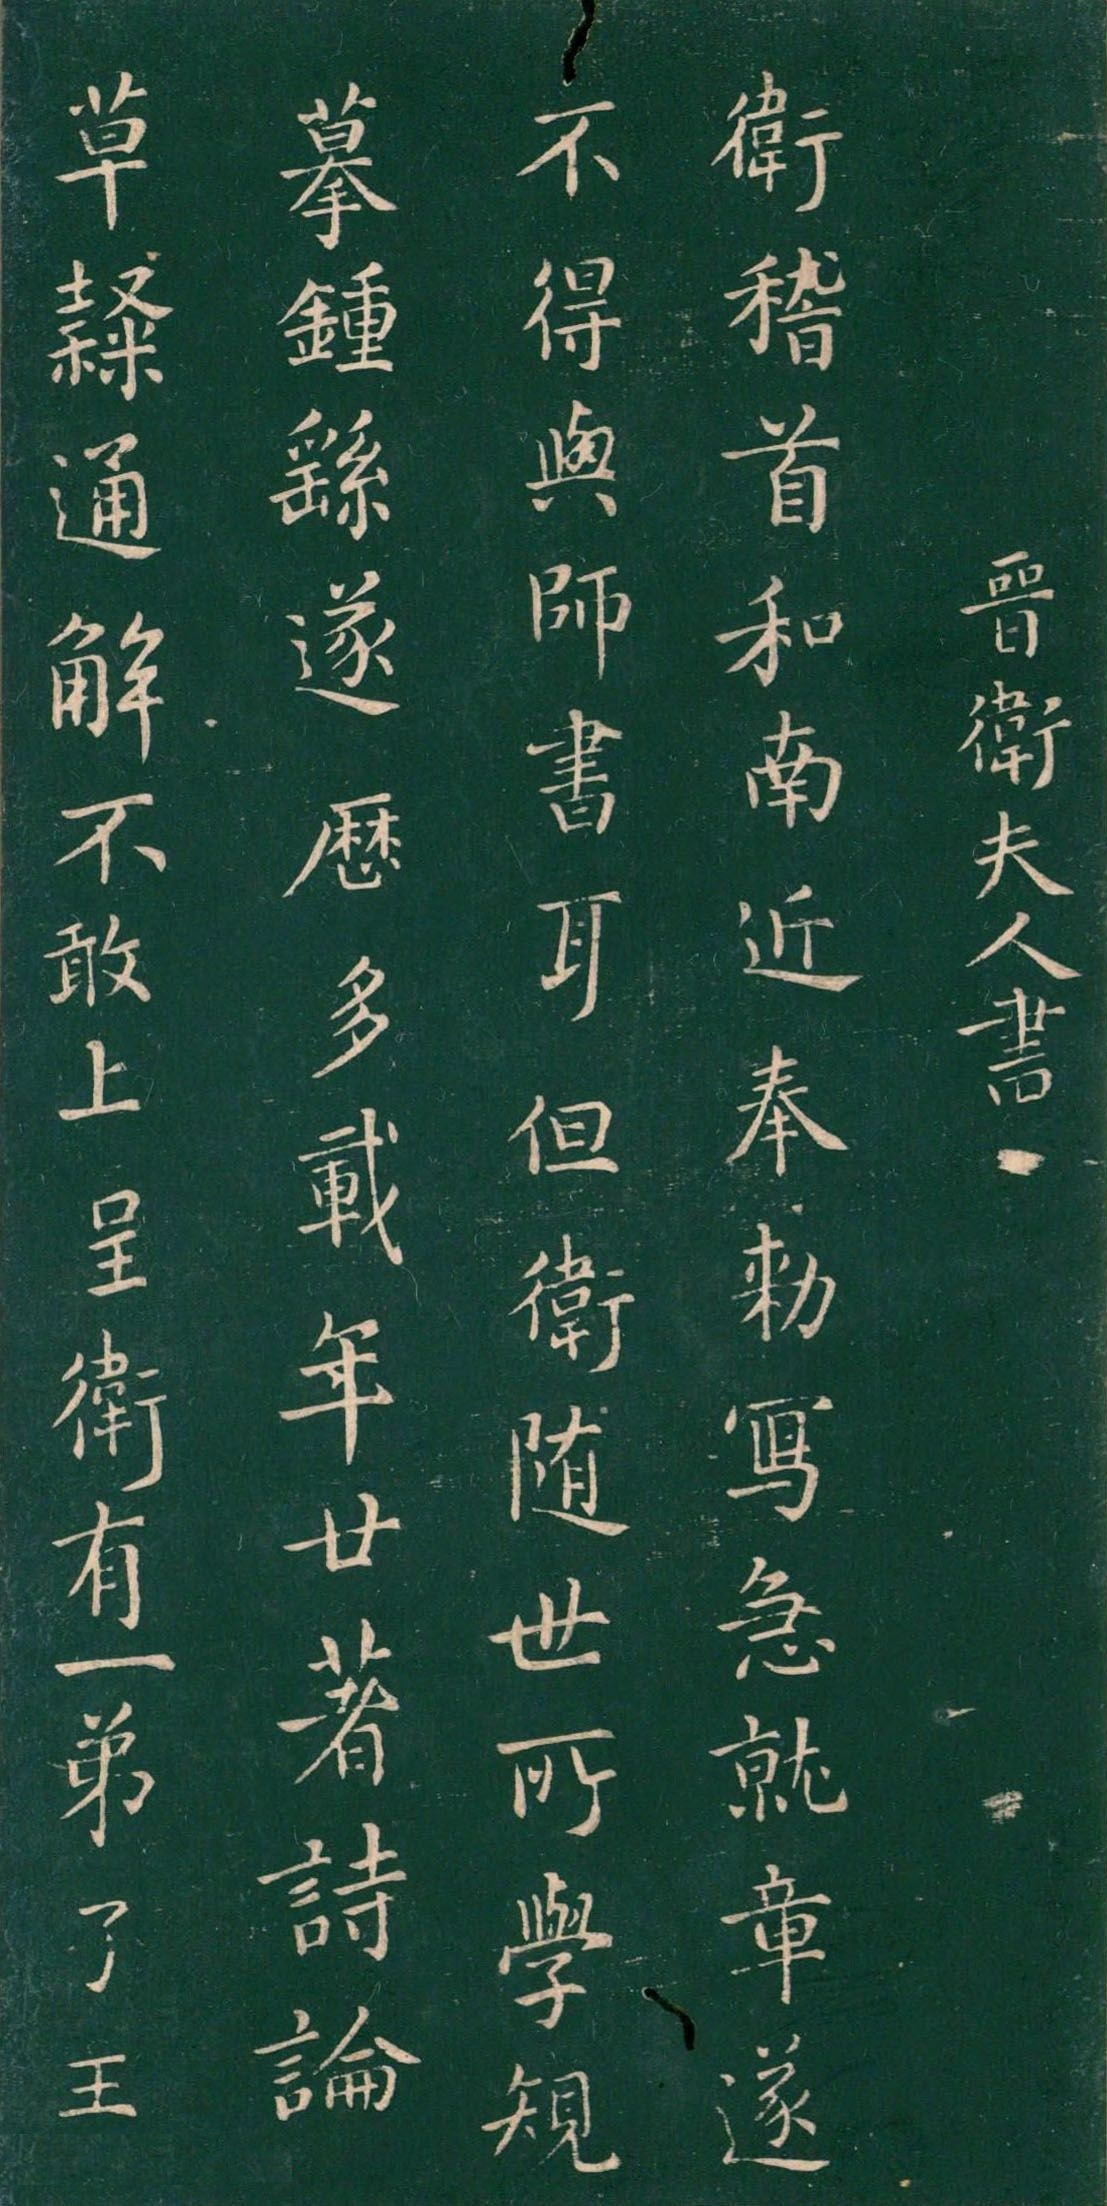 晉衛夫人書
衛稽首和南近奉勑寫急就章遂
不得與師書耳但衛随世所學規
摹鍾繇遂歷多載年廿著詩論
草隸通解不敢上呈衛有一弟子王